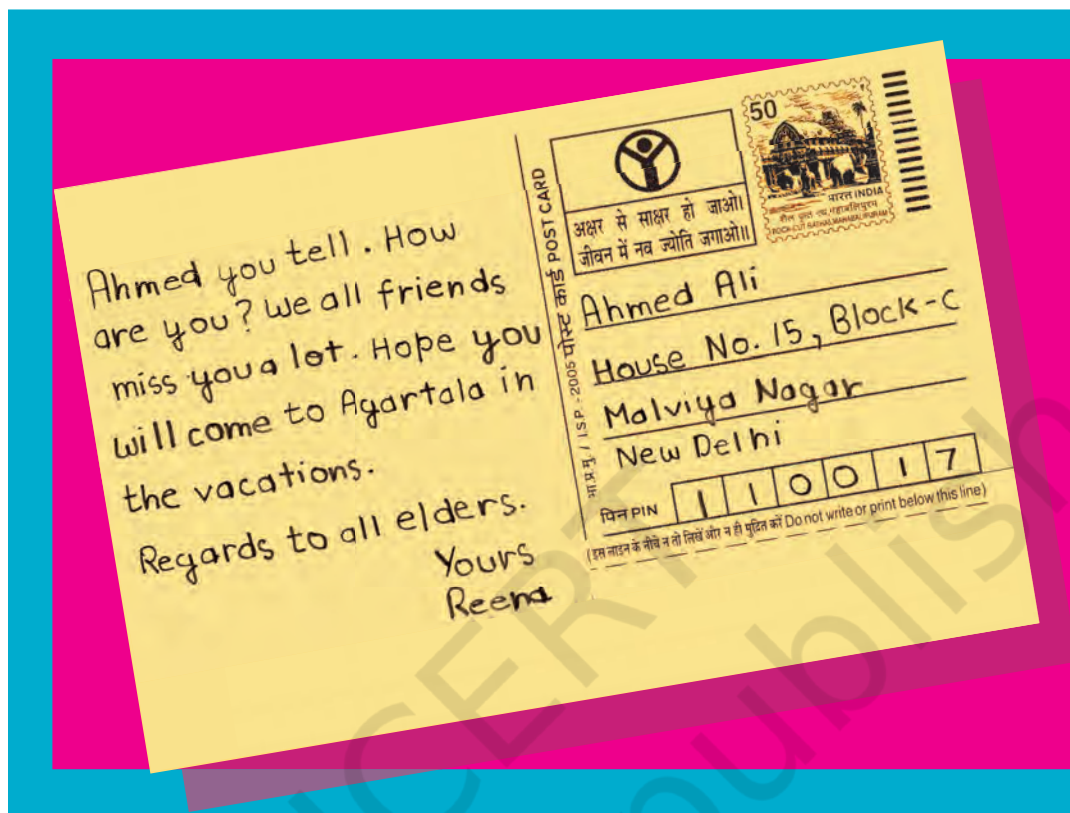 Ahmed you tell. How
are you? We all friends
miss you a lot. Hope you
will come to Agartala in
the vacations.
Regards to all elders.
Yours
Reena
भा.प्र.मु. / I.S.P - 2005 पोस्ट कार्ड POST CARD
अक्षर से साक्षर हो जाओ।
जीवन में नव ज्योति जगाओ॥
50
भारत INDIA
शैल कृत्त रथ, महाबलिपुरम
ROCK-CUT RATHAS, MAHABALIPURAM
Ahmed Ali
House No. 15, Block-C
Malviya Nagar
New Delhi
पिन PIN 110017
(इस लाइन के नीचे न तो लिखें और न ही मुद्रित करें Do not write or print below this line)
NCERT